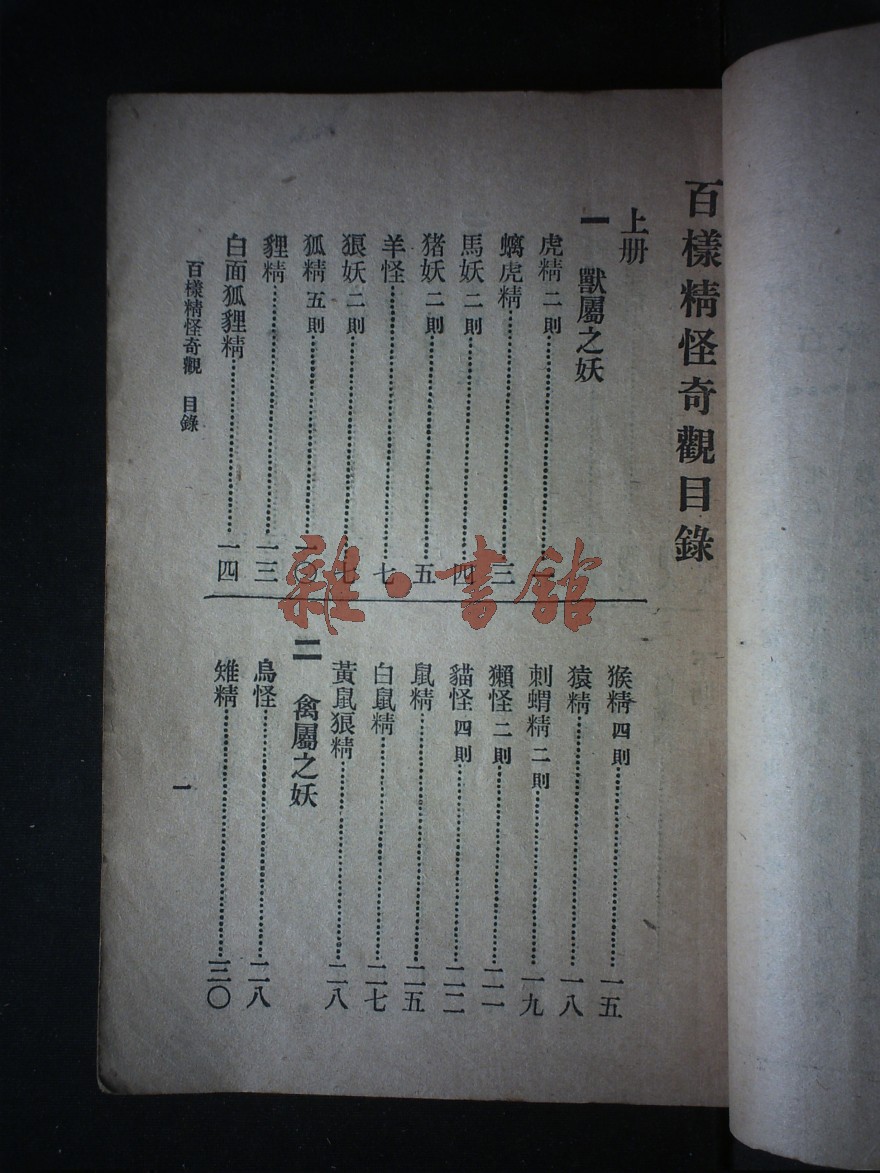 百樣精怪奇觀目錄
上册
一 獸屬之妖
虎精 二則 一
螭虎精 三
馬妖 二則 四
猪妖 二則 五
羊怪 七
狼妖 二則 七
狐精 五則 一〇
貍精 一三
白面狐貍精 一四
猴精 四則 一五
猿精 一八
刺蝟精 二則 一九
獺怪 二則 二一
貓怪 四則 二二
鼠精 二五
白鼠精 二七
黃鼠狼精 二八
二 禽屬之妖
鳥怪 二八
雉精 三〇
百樣精怪奇觀 目錄
一
雜·書館